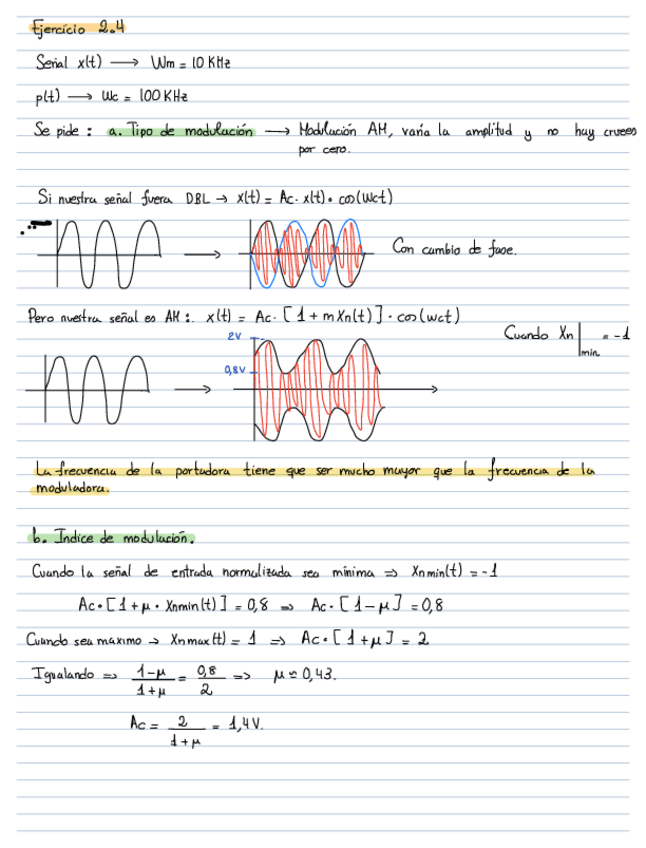 Ejercicio 2.4
Señal x(t) ⟶ Wm = 10 KHz
p(t) ⟶ Wc = 100 KHz
Se pide : a. Tipo de modulación ⟶ Modulación AM, varía la amplitud y no hay cruces
por cero.
Si nuestra señal fuera DBL → x(t) = Ac · x(t) • cos(Wct)
Con cambio de fase.
Pero nuestra señal es AM :. x(t) = Ac · [1 + m Xn(t)] · cos(wct)
Cuando Xn|min = -1
2V
0,8V
La frecuencia de la portadora tiene que ser mucho mayor que la frecuencia de la
moduladora.
b. Indice de modulación.
Cuando la señal de entrada normalizada sea mínima ⇒ Xnmin(t) = -1
Ac • [1 + μ • Xnmin(t)] = 0,8 ⇒ Ac • [1 - μ] = 0,8
Cuando sea maximo → Xnmax(t) = 1 ⇒ Ac • [1 + μ] = 2
Igualando ⇒ 1-μ / 1+μ = 0,8 / 2 ⇒ μ ≈ 0,43.
Ac = 2 / 1+μ = 1,4 V.